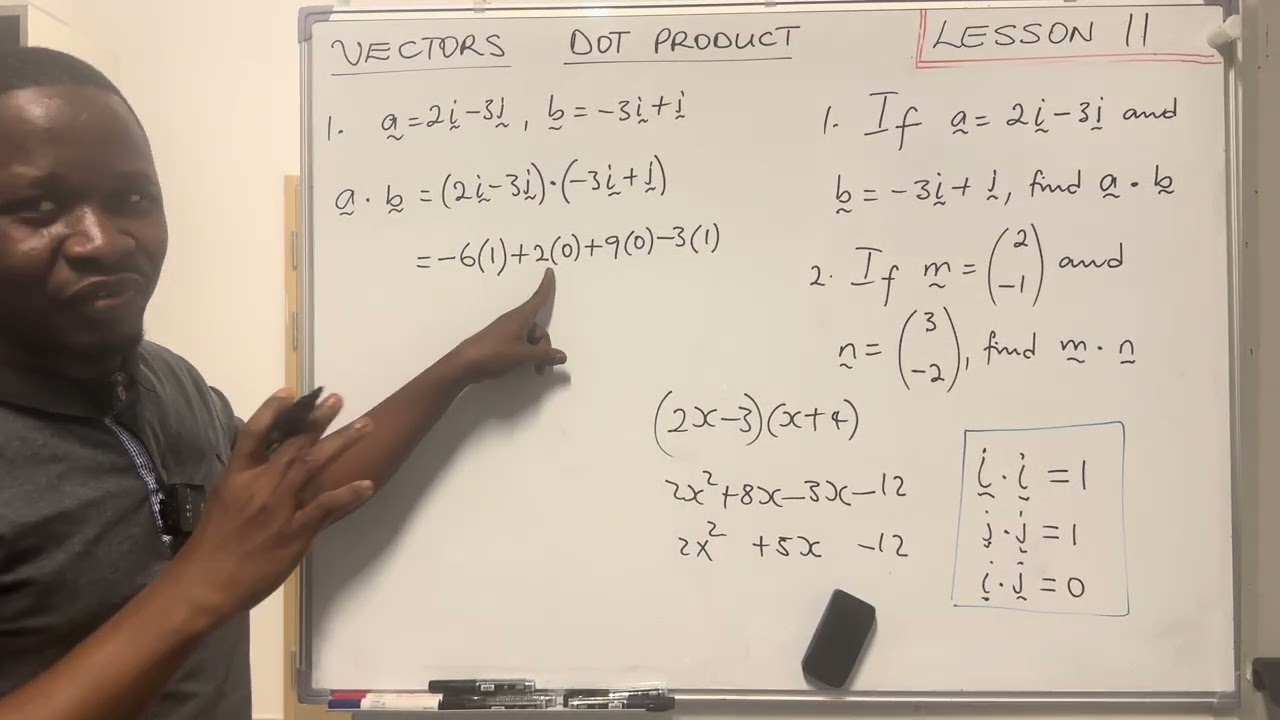 VECTORS DOT PRODUCT
LESSON 11
1. a = 2i - 3j, b = -3i + j
a · b = (2i - 3j)·(-3i + j)
= -6(1) + 2(0) + 9(0) - 3(1)
1. If a = 2i - 3j and
b = -3i + j, find a · b
2. If m = (2 -1) and
n = (3 -2), find m · n
(2x - 3)(x + 4)
2x² + 8x - 3x - 12
2x² + 5x - 12
i · i = 1
j · j = 1
i · j = 0